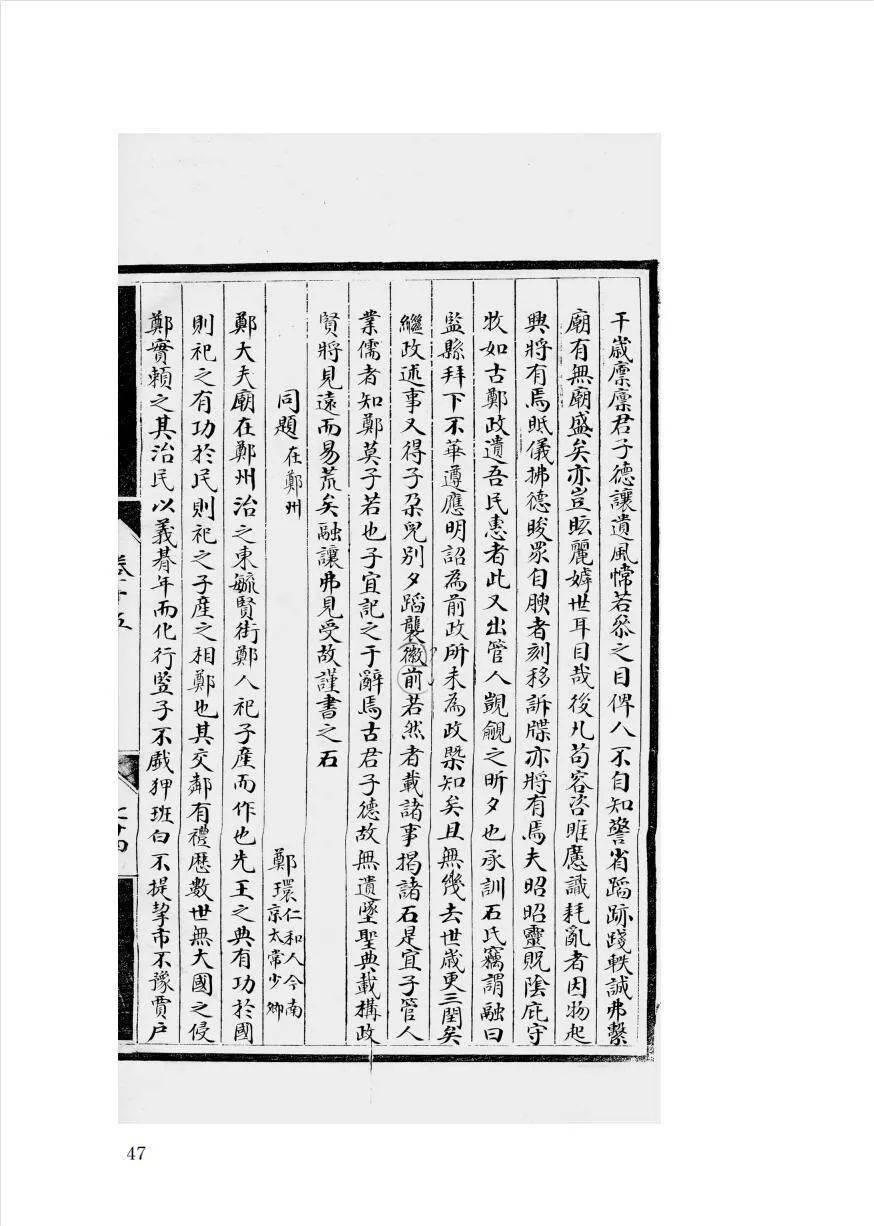 千歲廪廪君子德讓遺風㡏若叅之目俾人不自知警省蹈跡踐軼誠弗繫
廟有無廟盛矣亦豈眩麗嫭世耳目哉後凡苟容咨睢慝識耗亂者因物起
興將有焉眂儀拂德睃眾自腴者刻移訴牒亦將有焉夫昭昭靈貺陰庇守
牧如古鄭政遺吾民恵者此又出管人覬覦之昕夕也承訓石氏竊謂融曰
監縣拜下不華遵應明詔為前政所未為政槩知矣且無幾去世歲更三閏矣
繼政述事又得子朶兒別夕蹈襲徽前若然者載諸事揭諸石是宜子管人
業儒者知鄭莫子若也子宜記之于辭焉古君子德故無遺墜聖典載構政
賢將見遠而易荒矣融讓弗見受故謹書之石
同題在鄭州
鄭環仁和人今南京太常少卿
鄭大夫廟在鄭州治之東毓賢街鄭人祀子產而作也先王之典有功於國
則祀之有功於民則祀之子產之相鄭也其交鄰有禮歷數世無大國之侵
鄭實賴之其治民以義朞年而化行竪子不戲狎班白不提挈市不豫賈户
卷十五
七十四
47